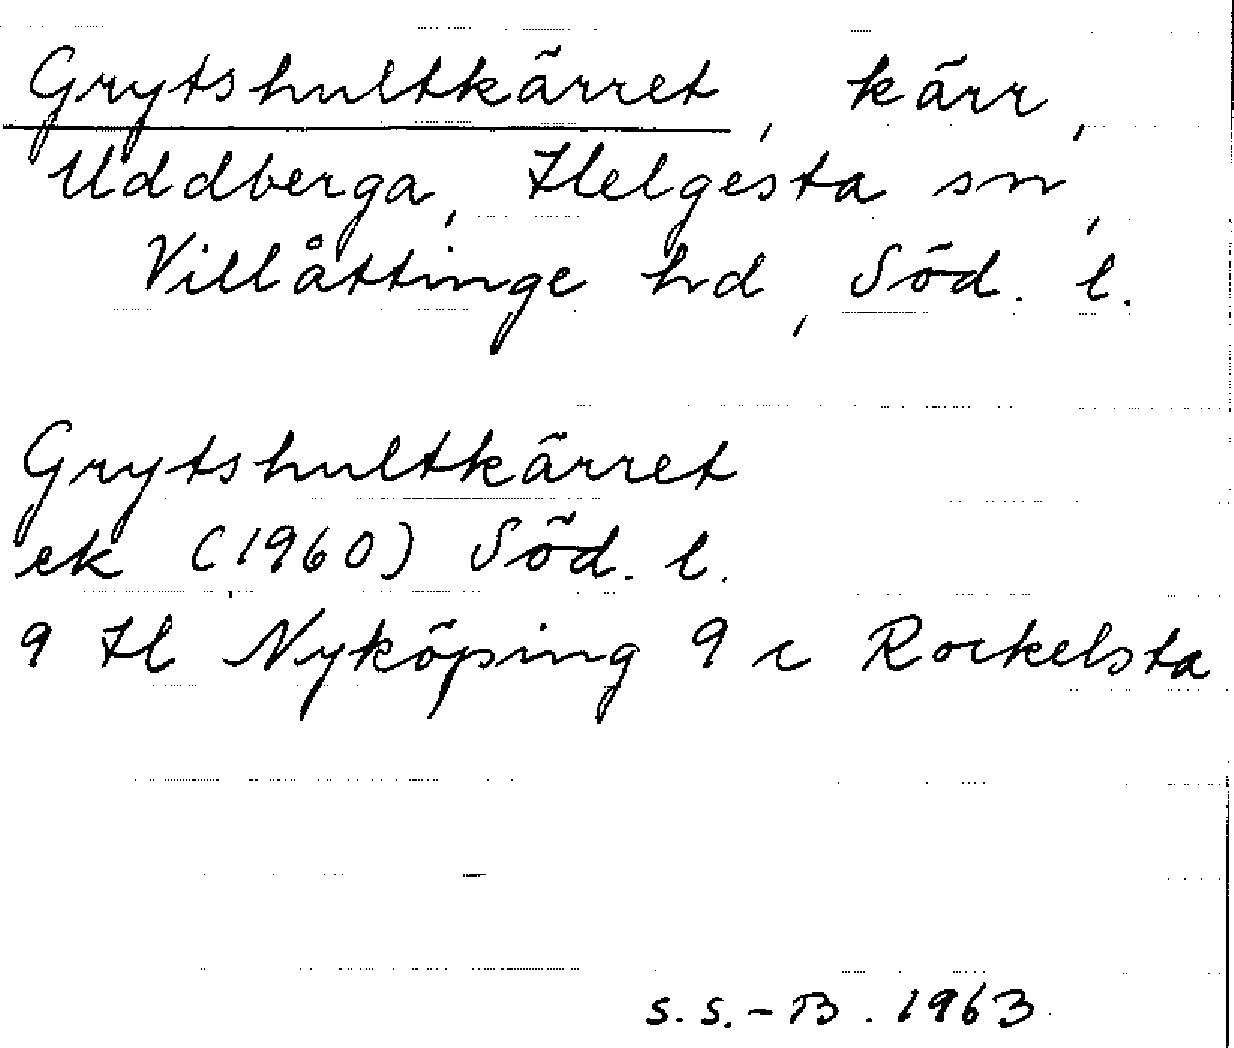 Grytshultkärret, kärr,
Uddberga, Helgesta sn,
Villåttinge hd, Söd. l.
Grytshultkärret
ek (1960) Söd. l.
9 H Nyköping 9 c Rockelsta
S. S.-B. 1963